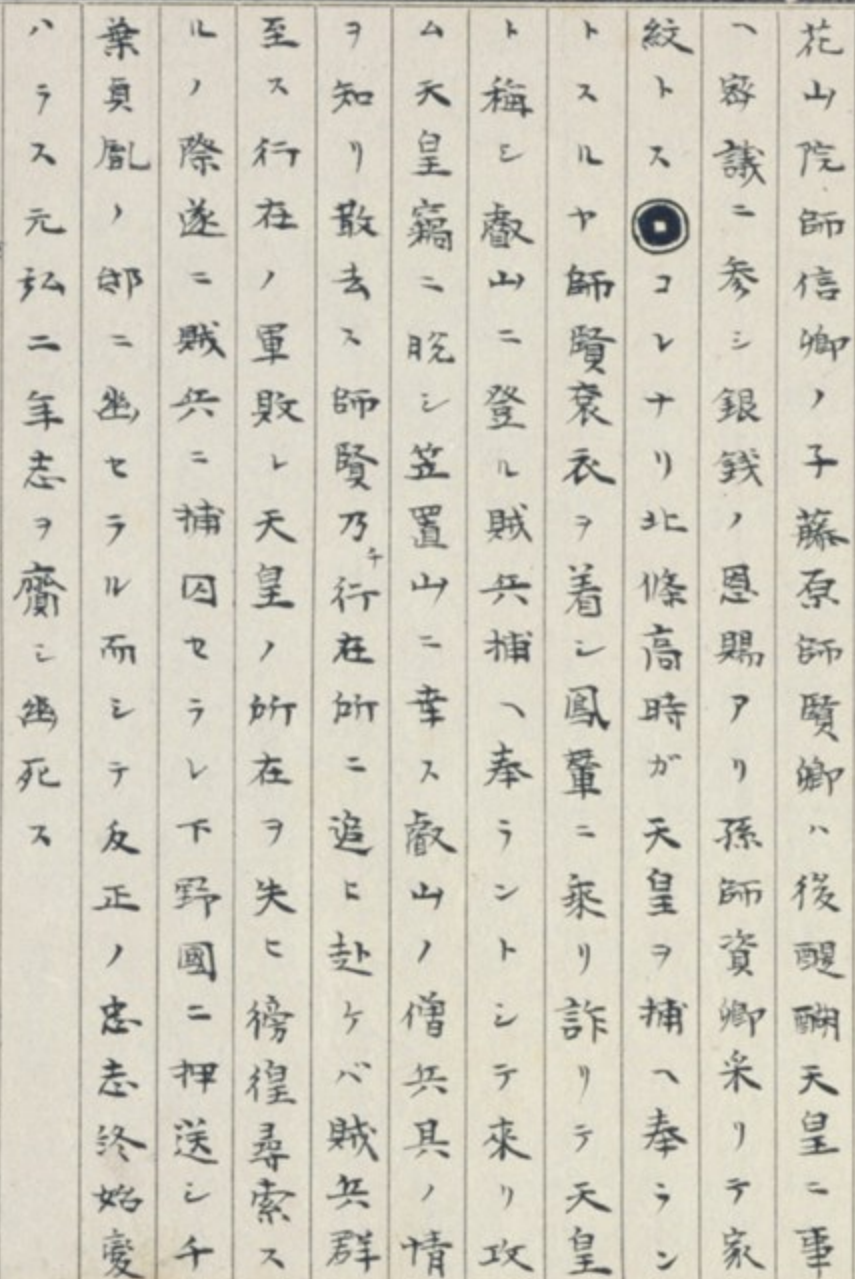 花山院師信卿ノ子藤原師賢卿ハ後醍醐天皇ニ事
ヘ密議ニ参シ銀銭ノ恩賜アリ孫師資卿采リテ家
紋トスコレナリ北條高時ガ天皇ヲ捕ヘ奉ラン
トスルヤ師賢袞衣ヲ着シ鳳輦ニ乗リ詐リテ天皇
ト稱シ叡山ニ登ル賊兵捕ヘ奉ラントシテ來リ攻
ム天皇竊ニ脱シ笠置山ニ幸ス叡山ノ僧兵其ノ情
ヲ知リ散去ス師賢乃チ行在所ニ追ヒ赴ケバ賊兵群
至ス行在ノ軍敗レ天皇ノ所在ヲ失ヒ徬徨尋索ス
ルノ際遂ニ賊兵ニ捕囚セラレ下野國ニ押送シ千
葉貞胤ノ邸ニ幽セラル而シテ反正ノ忠志終始変
ハラス元弘二年志ヲ齎シ幽死ス